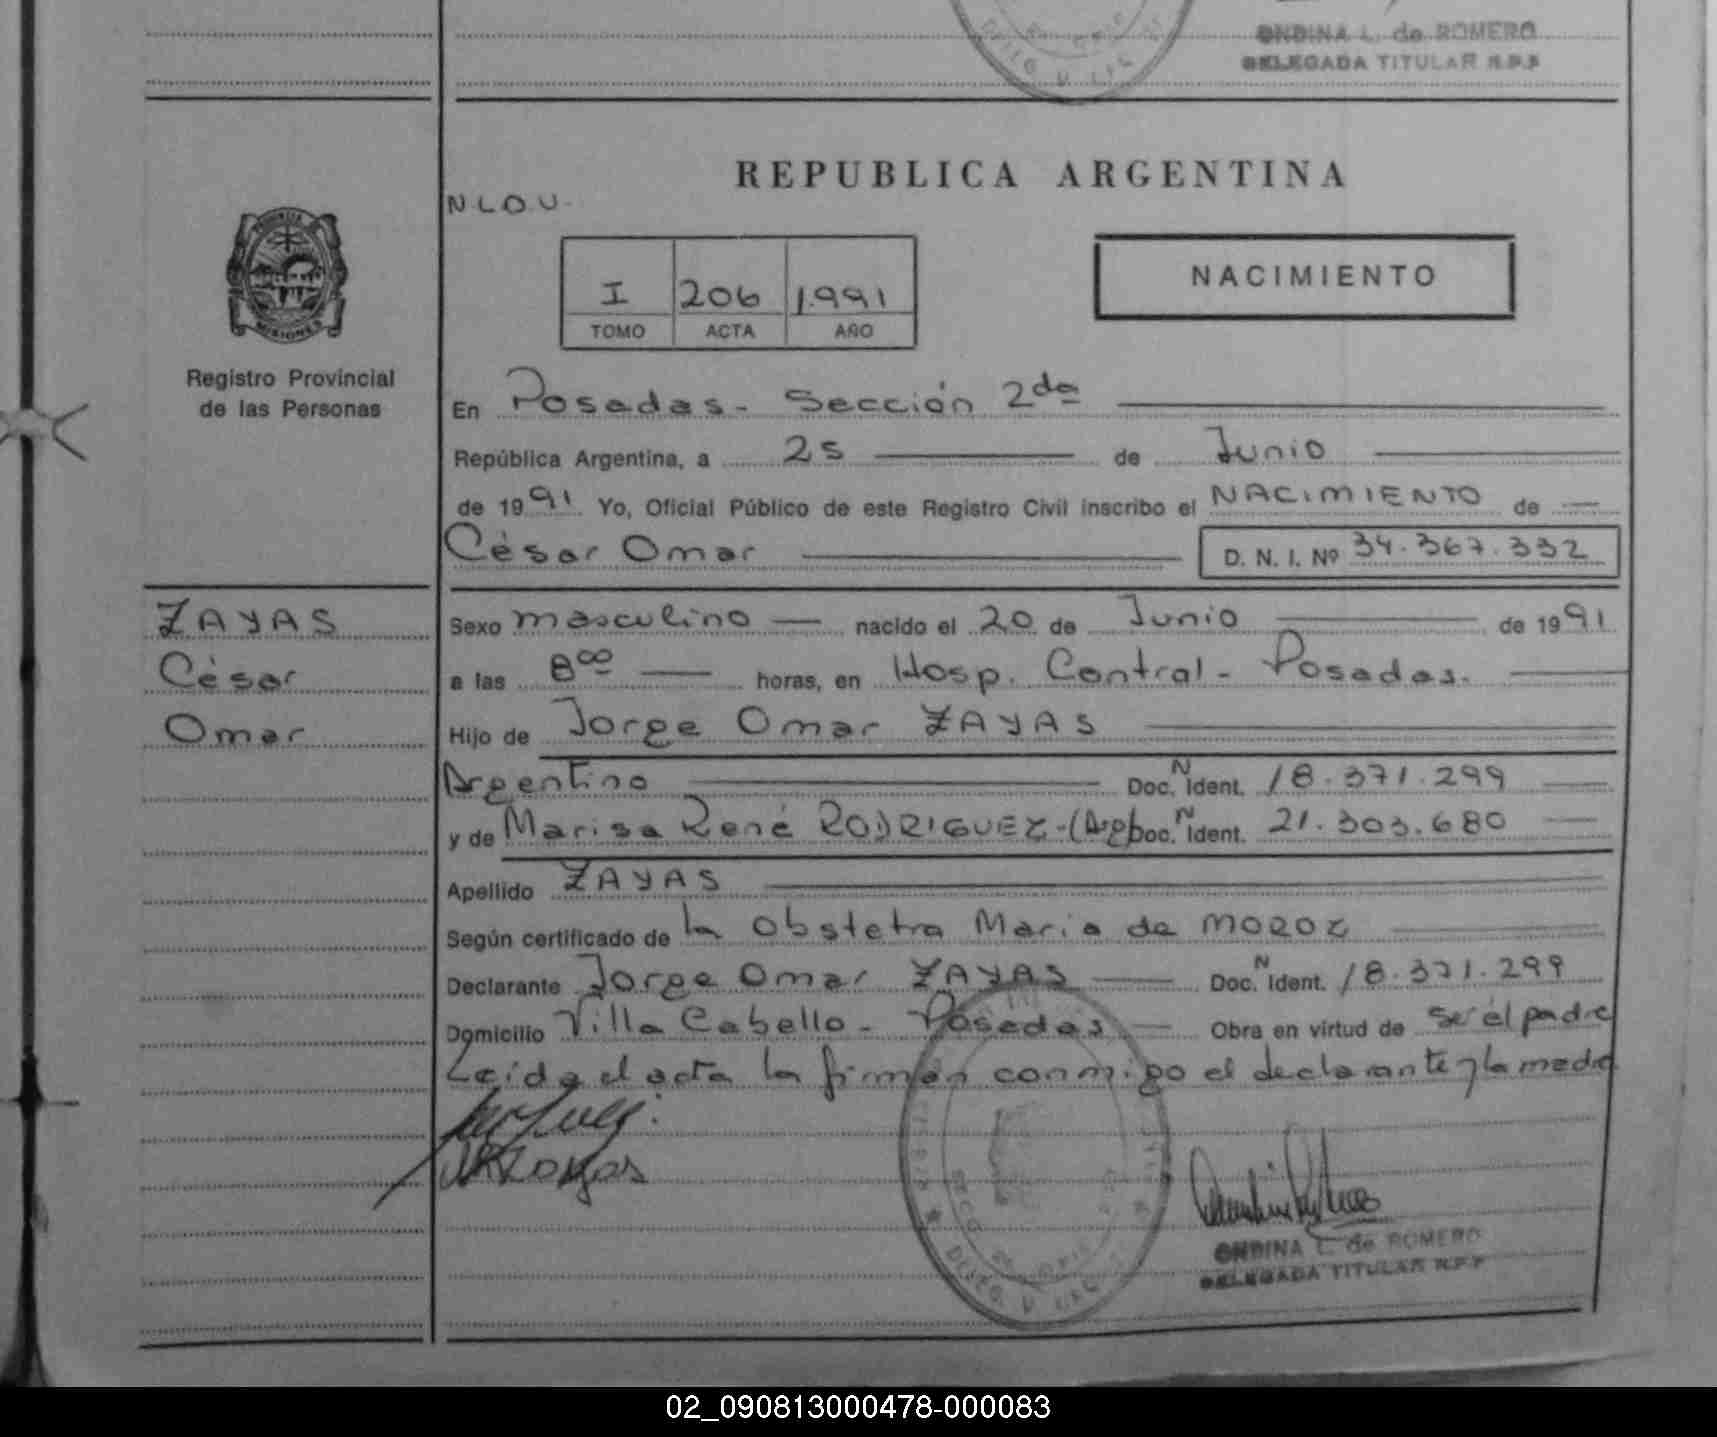 ONDINA L. de ROMERO
DELEGADA TITULAR R.P.P
REPUBLICA ARGENTINA
N L O U.
I 206 1991
TOMO ACTA AÑO
NACIMIENTO
PROVINCIA
MISIONES
Registro Provincial
de las Personas
En Posadas - Sección 2da
República Argentina, a 25 de Junio
de 1991 Yo, Oficial Público de este Registro Civil inscribo el NACIMIENTO de
César Omar D. N. I. Nº 34.367.332
ZAYAS
César
Omar
Sexo masculino nacido el 20 de Junio de 1991
a las 8oo horas, en Hosp. Central - Posadas.
Hijo de Jorge Omar ZAYAS
Argentino Doc. N Ident. 18.371.299
y de Marisa René RODRIGUEZ - (Arg) Doc. N Ident. 21.303.680
Apellido ZAYAS
Según certificado de la Obstetra Maria de MOROZ
Declarante Jorge Omar ZAYAS Doc. N Ident. 18.371.299
Domicilio Villa Cabello - Posadas Obra en virtud de ser él padre
Leida el acta la firman conmigo el declarante y la madre
ONDINA L. de ROMERO
DELEGADA TITULAR R.P.P
02_090813000478-000083